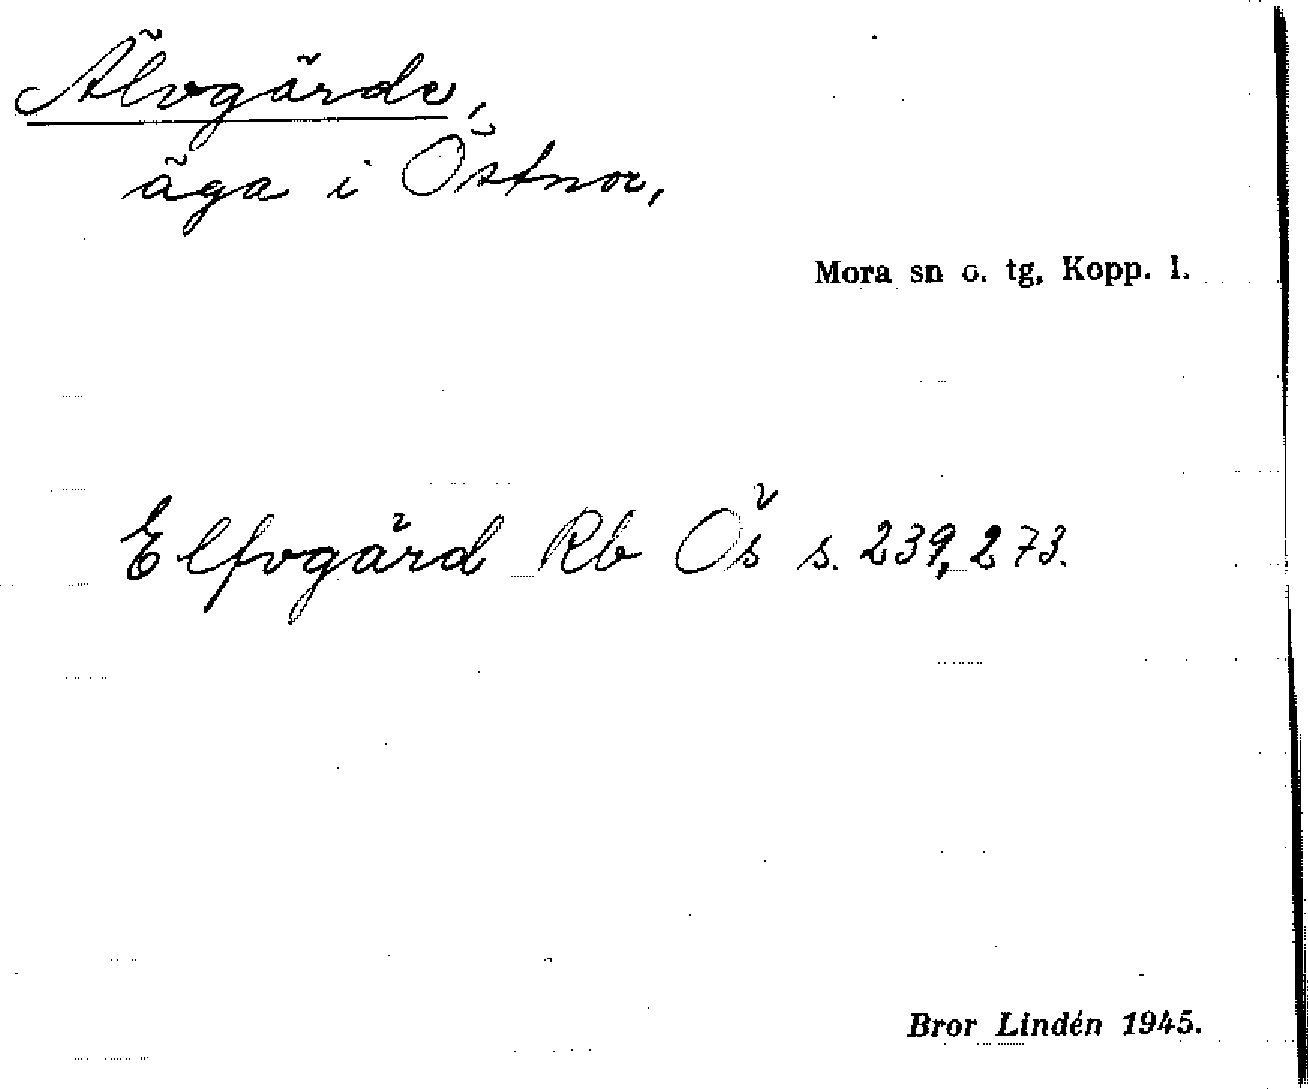 Älvgärde,
äga i Östnor,
Mora sn o. tg, Kopp. l.
Elfvgärd Rb Ös s. 239, 273.
Bror Lindén 1945.